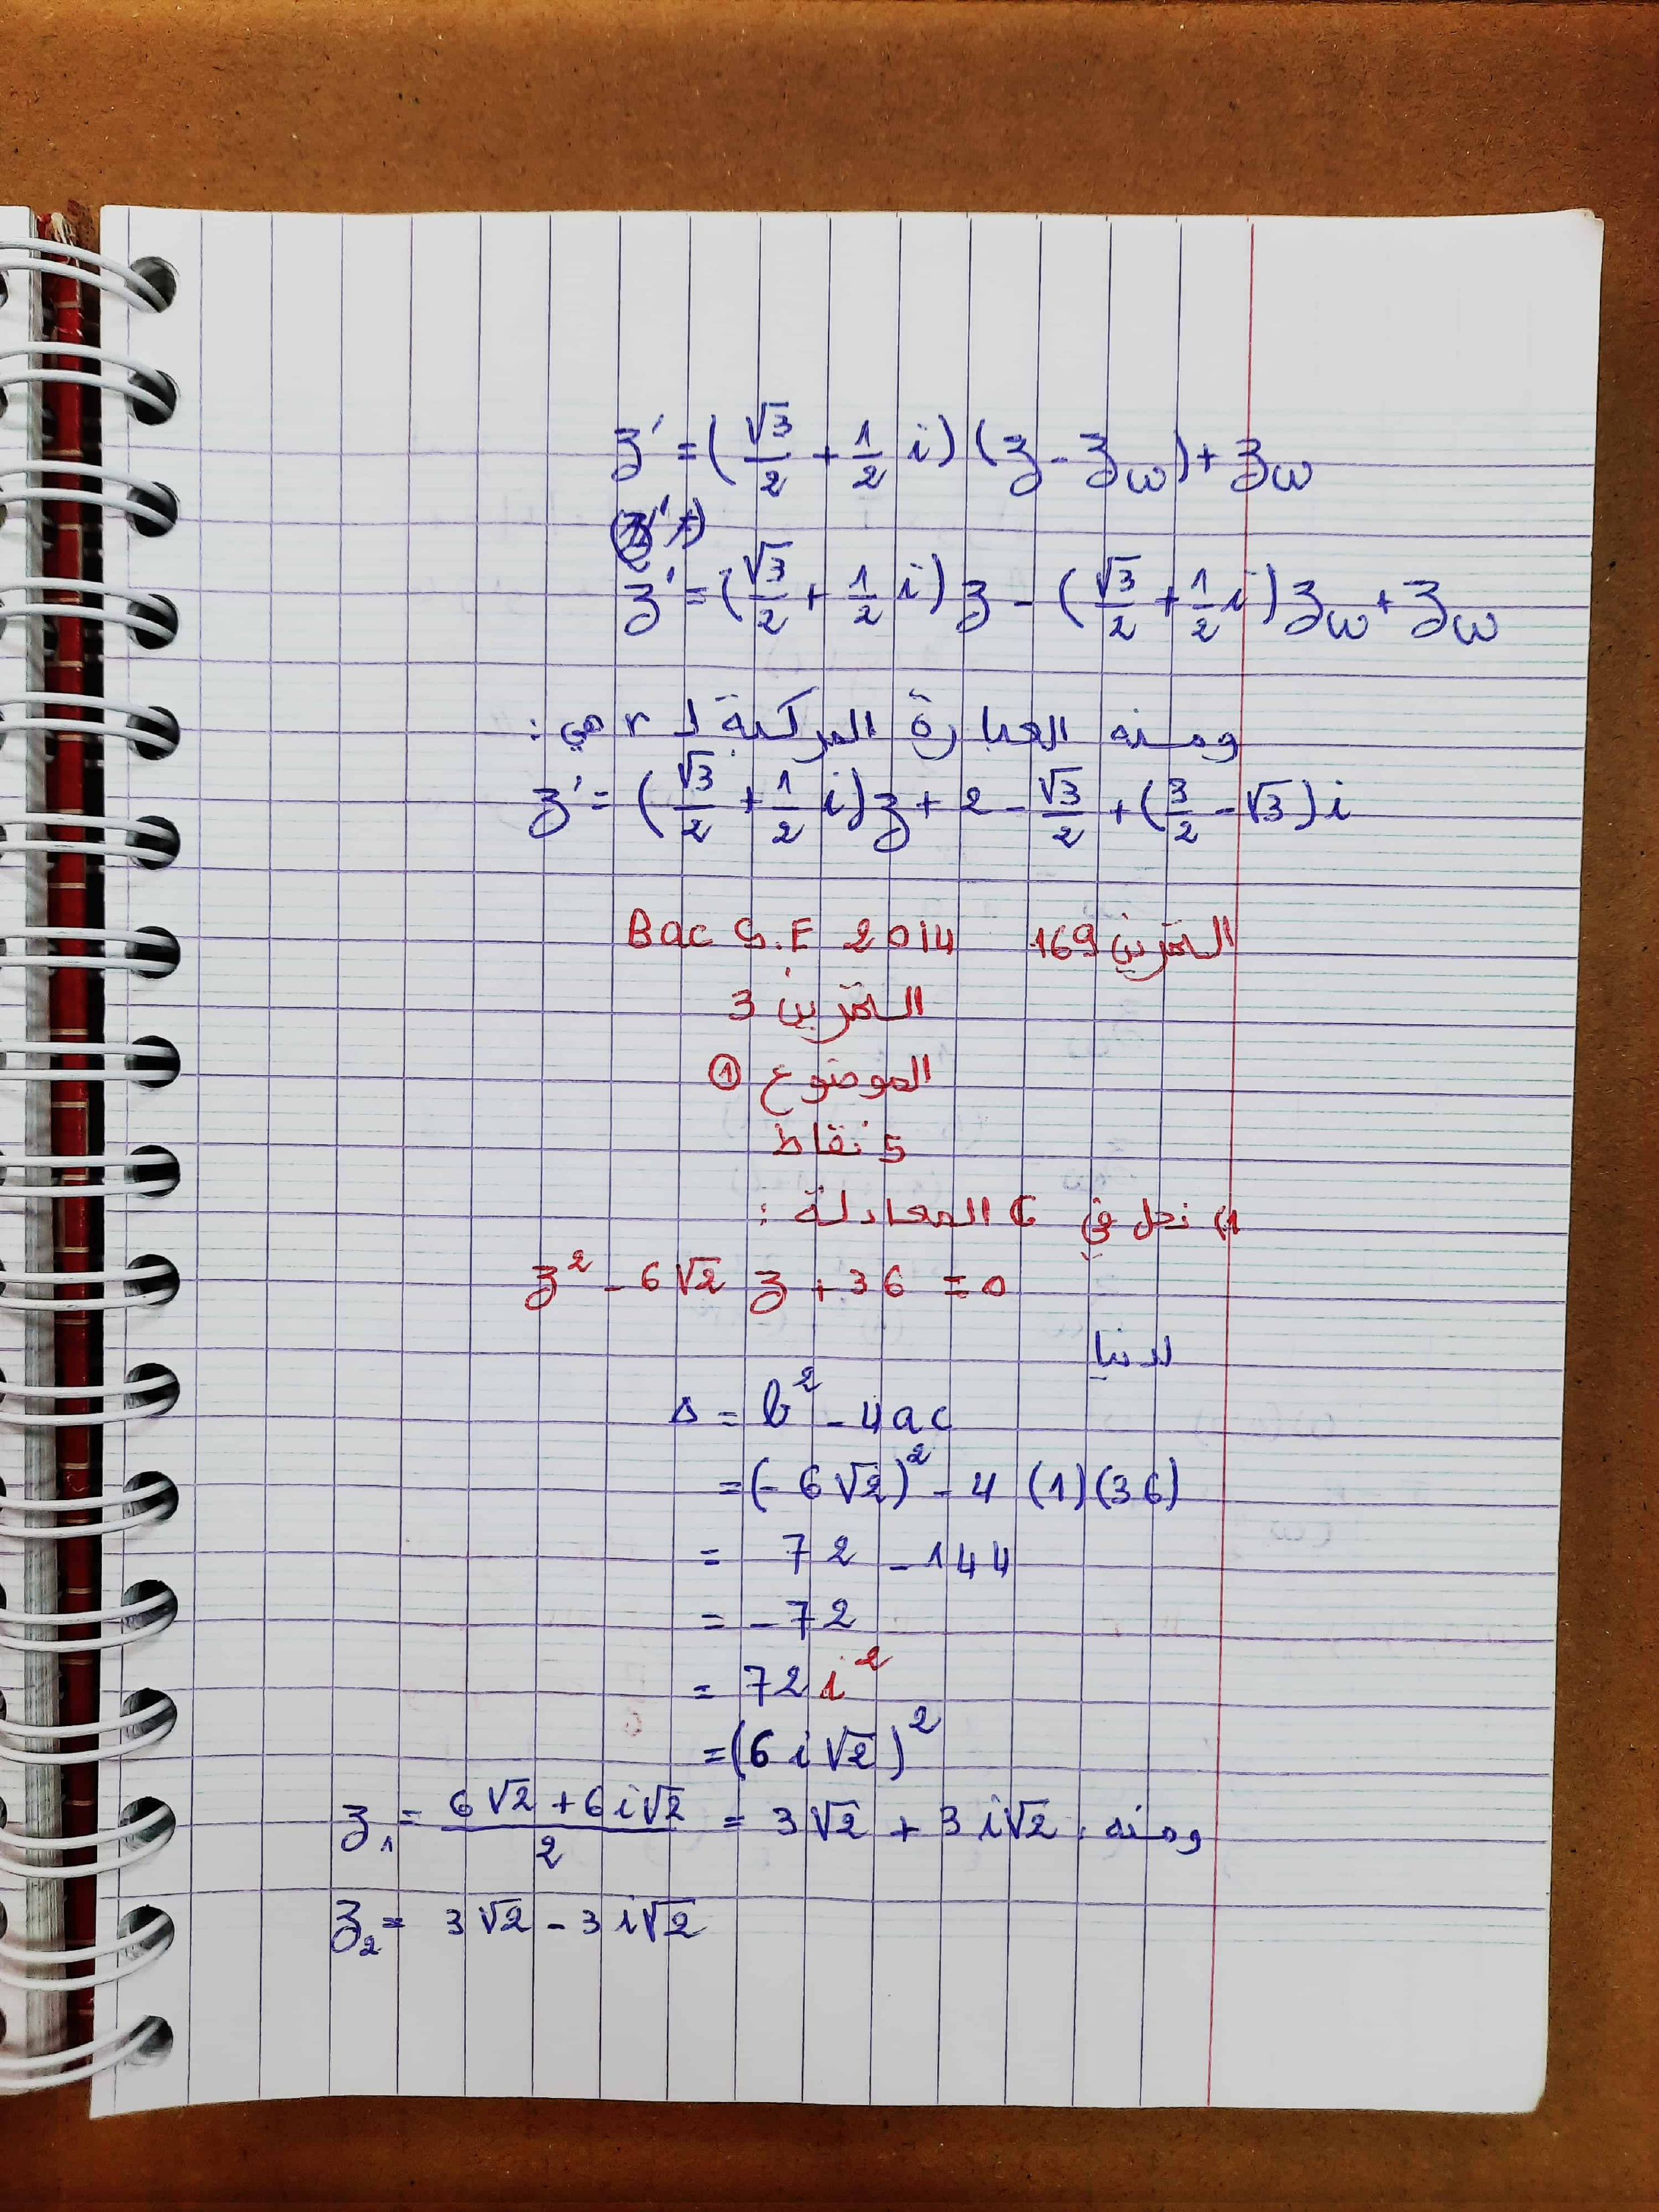 z' = (√3/2 + 1/2 i) (z - zω) + zω
z' = (√3/2 + 1/2 i) z - (√3/2 + 1/2 i) zω + zω
ومنه العبارة المركبة لـ r هي :
z' = (√3/2 + 1/2 i) z + 2 - √3/2 + (3/2 - √3) i
التمرين 169 Bac S.E 2014
التمرين 3
الموضوع ①
5 نقاط
1) نحل في ℂ المعادلة :
z² - 6√2 z + 36 = 0
لدينا
Δ = b² - 4ac
= (- 6√2)² - 4 (1) (36)
= 72 - 144
= - 72
= 72 i²
= (6 i √2)²
ومنه : z₁ = (6√2 + 6i√2)/2 = 3√2 + 3i√2
z₂ = 3√2 - 3i√2